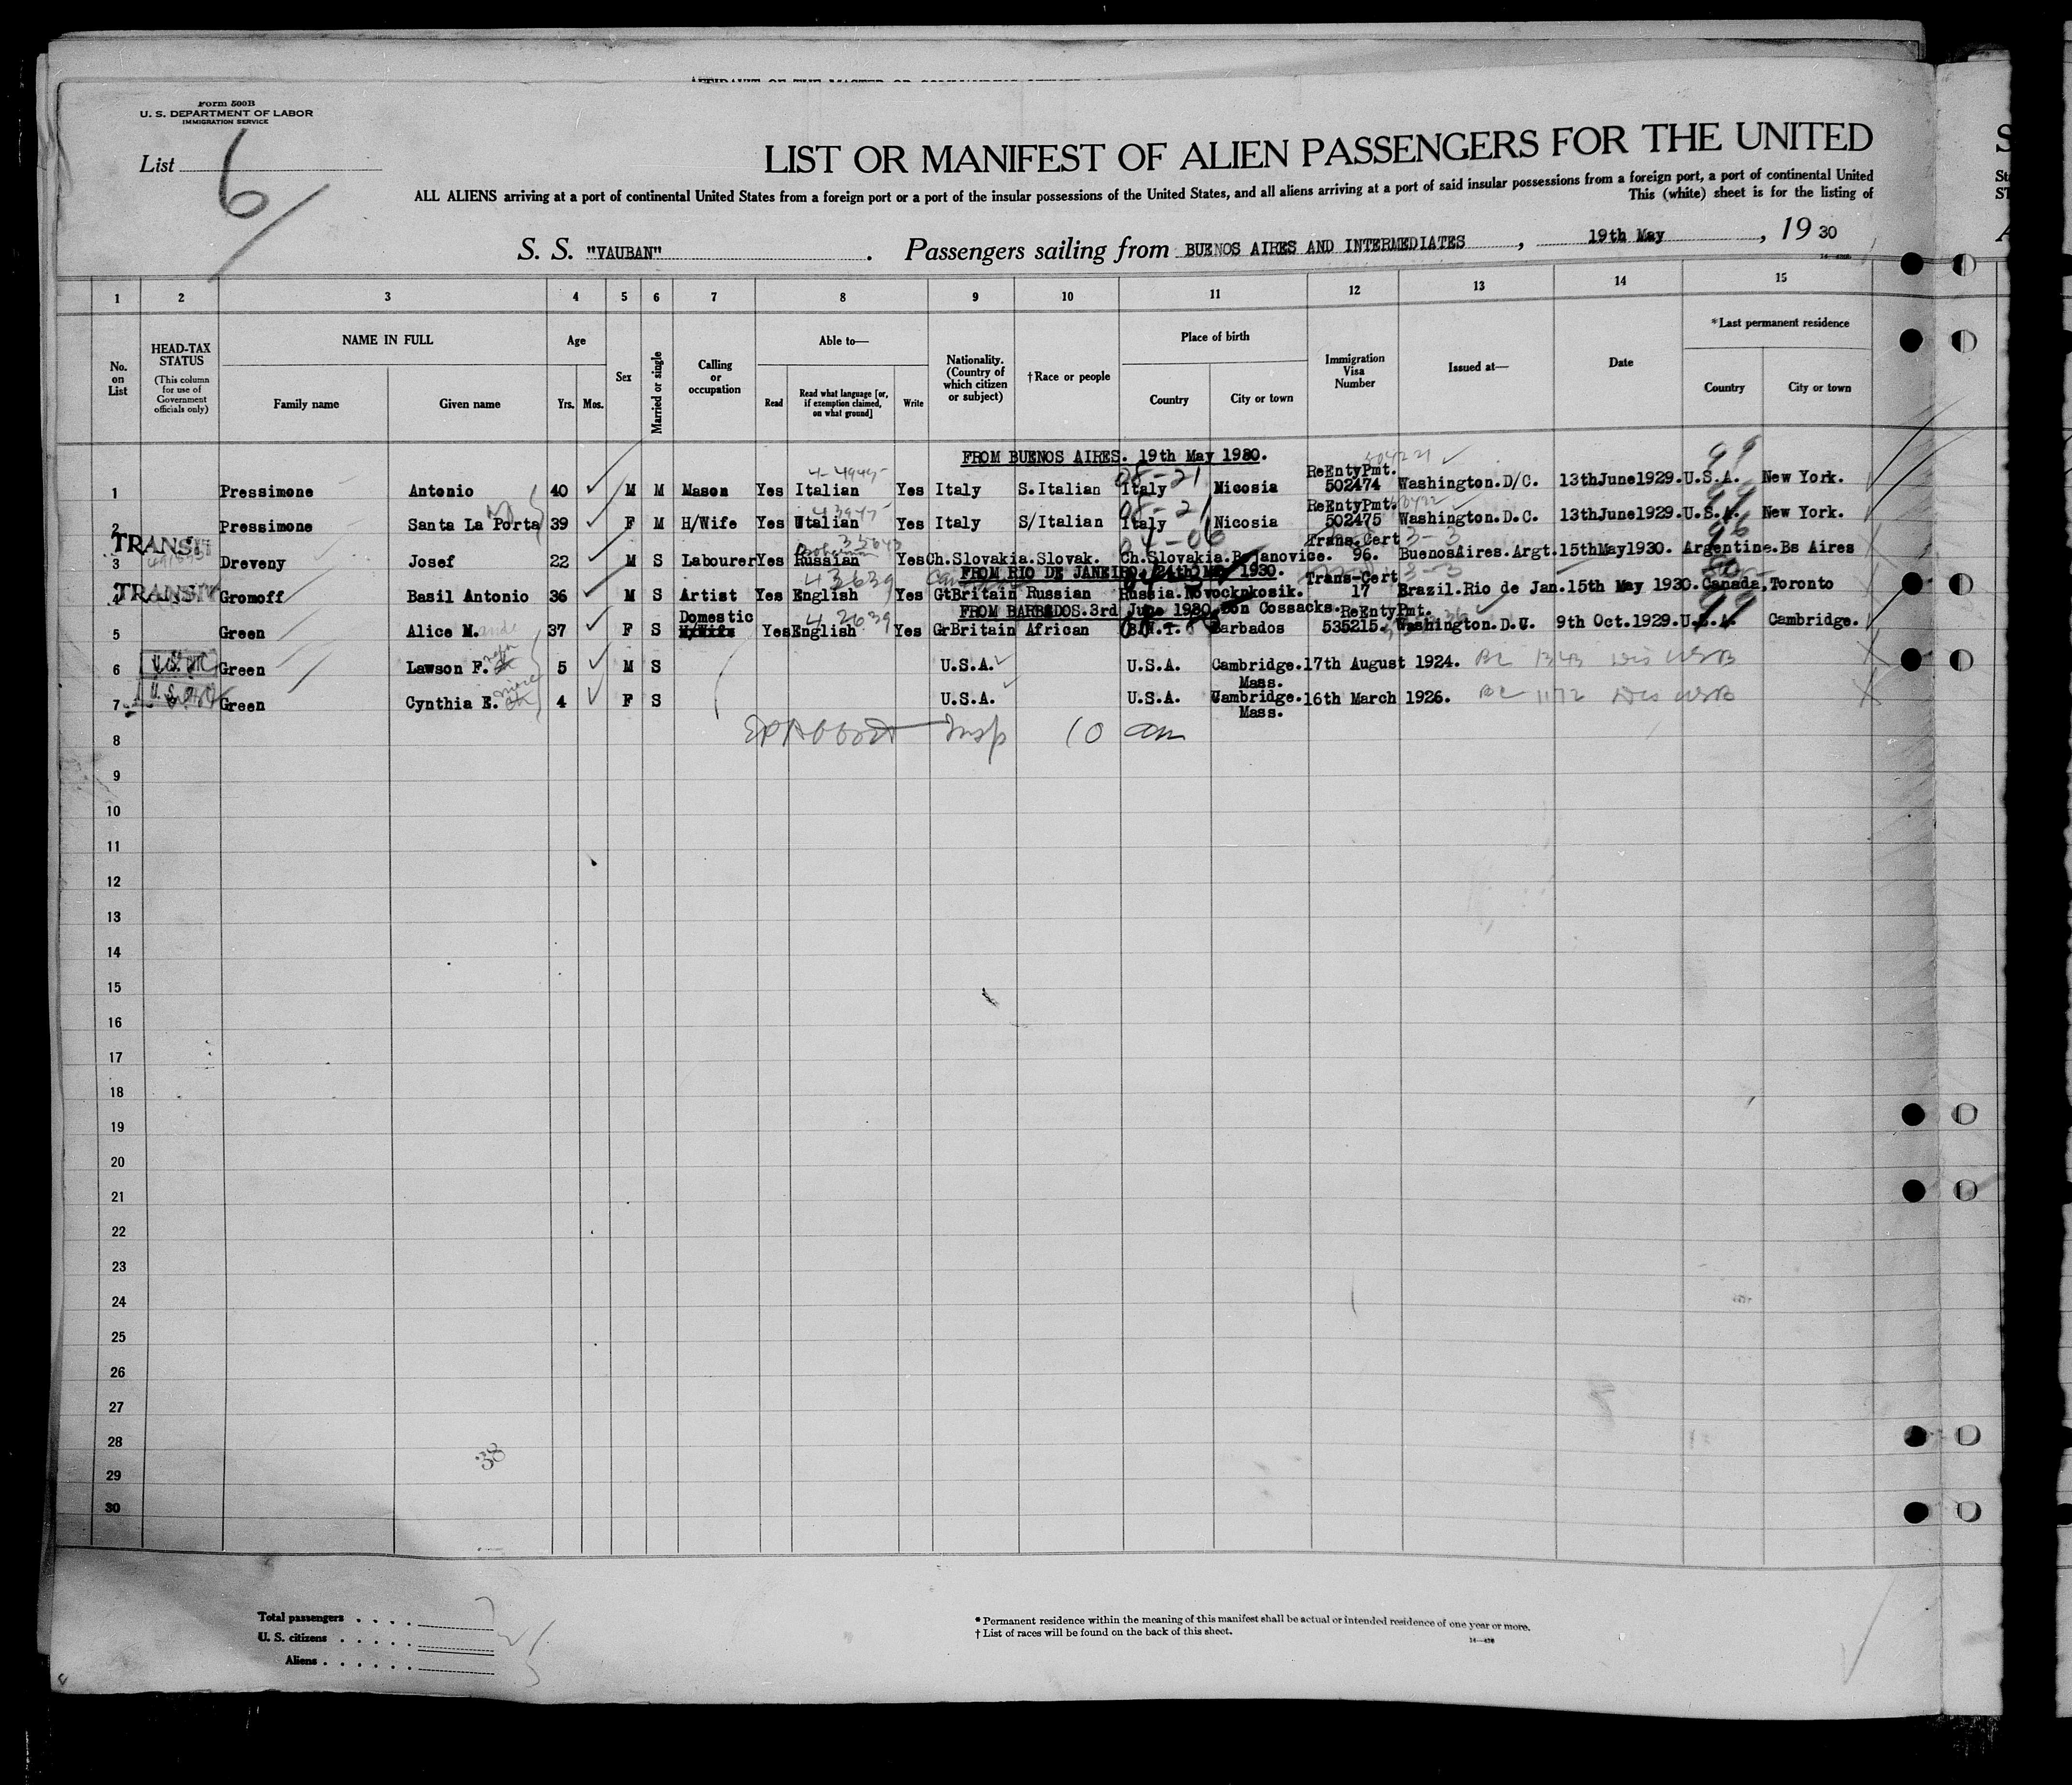 AFFIDAVIT OF THE MASTER OR COMMANDING
Form 500B
U. S. DEPARTMENT OF LABOR
IMMIGRATION SERVICE
List 6
LIST OR MANIFEST OF ALIEN PASSENGERS FOR THE UNITED
ALL ALIENS arriving at a port of continental United States from a foreign port or a port of the insular possessions of the United States, and all aliens arriving at a port of said insular possessions from a foreign port, a port of continental United
This (white) sheet is for the listing of
S. S. "VAUBAN". Passengers sailing from BUENOS AIRES AND INTERMEDIATES, 19th May, 1930
1 2 3 4 5 6 7 8 9 10 11 12 13 14 15
No. on List
HEAD-TAX STATUS (This column for use of Government officials only)
NAME IN FULL
Family name Given name
Age
Yrs. Mos.
Sex
Married or single
Calling or occupation
Able to—
Read Read what language [or, if exemption claimed, on what ground] Write
Nationality. (Country of which citizen or subject)
†Race or people
Place of birth
Country City or town
Immigration Visa Number
Issued at—
Date
*Last permanent residence
Country City or town
FROM BUENOS AIRES. 19th May 1930.
1 Pressimone Antonio 40 M M Mason Yes Italian Yes Italy S.Italian Italy Nicosia ReEntyPmt. 502474 Washington.D/C. 13thJune1929. U.S.A. New York.
2 Pressimone Santa La Porta 39 F M H/Wife Yes Utalian Yes Italy S/Italian Italy Nicosia ReEntyPmt. 502475 Washington.D.C. 13thJune1929. U.S.A. New York.
TRANSIT
3 Dreveny Josef 22 M S Labourer Yes Russian Yes Ch.Slovakia.Slovak. Ch.Slovakia.Bojanovice. Trans.Cert 96. BuenosAires.Argt. 15thMay1930. Argentine.Bs Aires
FROM RIO DE JANEIRO. 24th May 1930.
TRANSIT
4 Gromoff Basil Antonio 36 M S Artist Yes English Yes GtBritain Russian Russia.Novocknkosik. Trans-Cert 17 Brazil.Rio de Jan. 15th May 1930. Canada, Toronto
FROM BARBADOS. 3rd June 1930. Don Cossacks.
5 Green Alice M. 37 F S Domestic H/Wife Yes English Yes GrBritain African B.W.I. Barbados ReEntyPmt. 535215. Washington.D.C. 9th Oct.1929. U.S.A. Cambridge.
6 Green Lawson F. 5 M S U.S.A. U.S.A. Cambridge. Mass. 17th August 1924.
7 Green Cynthia E. niece 4 F S U.S.A. U.S.A. Cambridge. Mass. 16th March 1926.
8 Insp 10 am
9
10
11
12
13
14
15
16
17
18
19
20
21
22
23
24
25
26
27
28
38
29
30
Total passengers
U. S. citizens
Aliens
* Permanent residence within the meaning of this manifest shall be actual or intended residence of one year or more.
† List of races will be found on the back of this sheet.